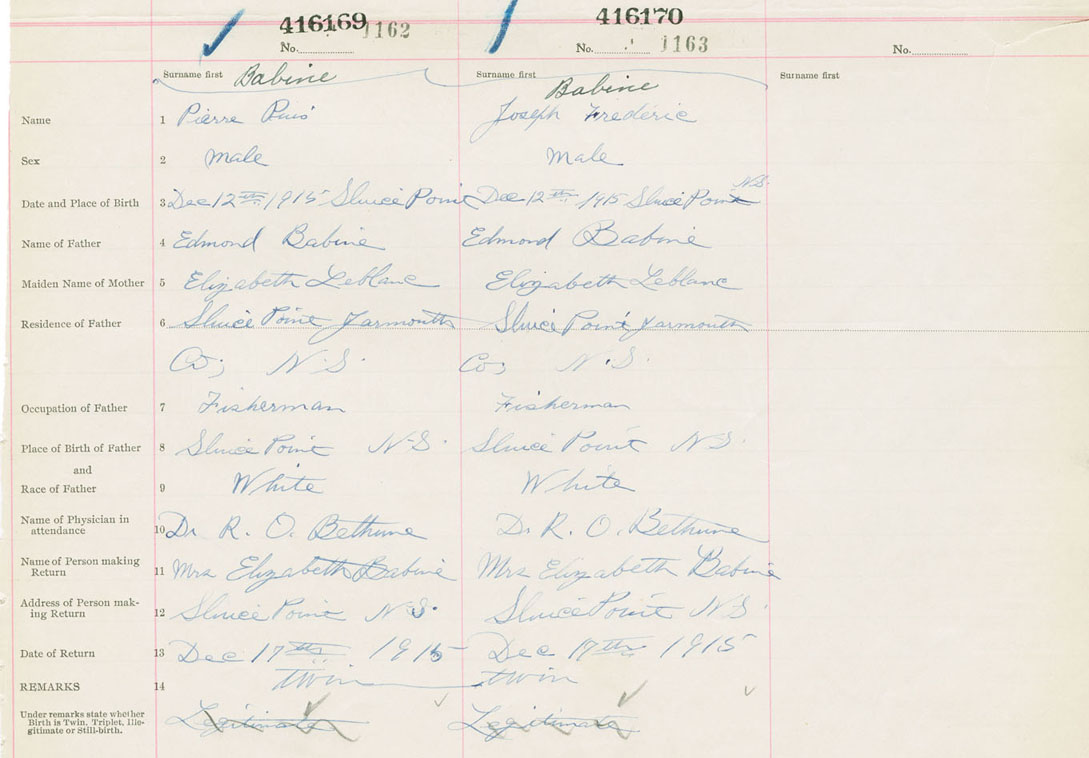 416169 1162 416170 1163
No. No. No.
Surname first Babine Surname first Babine Surname first
Name 1 Pierre Puis Joseph Frederic
Sex 2 Male Male
Date and Place of Birth 3 Dec 12th 1915 Sluice Point Dec 12th 1915 Sluice Point N.S.
Name of Father 4 Edmond Babine Edmond Babine
Maiden Name of Mother 5 Elizabeth Leblanc Elizabeth Leblanc
Residence of Father 6 Sluice Point Yarmouth Sluice Point Yarmouth
Co; N.S. Co; N.S.
Occupation of Father 7 Fisherman Fisherman
Place of Birth of Father 8 Sluice Point N-S. Sluice Point N-S.
and
Race of Father 9 White White
Name of Physician in
attendance 10 Dr R. O. Bethune Dr R. O. Bethune
Name of Person making
Return 11 Mrs Elizabeth Babine Mrs Elizabeth Babine
Address of Person mak-
ing Return 12 Sluice Point N.S. Sluice Point N.S.
Date of Return 13 Dec 17th 1915 Dec 17th 1915
REMARKS 14 twin twin
Under remarks state whether
Birth is Twin, Triplet, Ille-
gitimate or Still-birth. Legitimate Legitimate